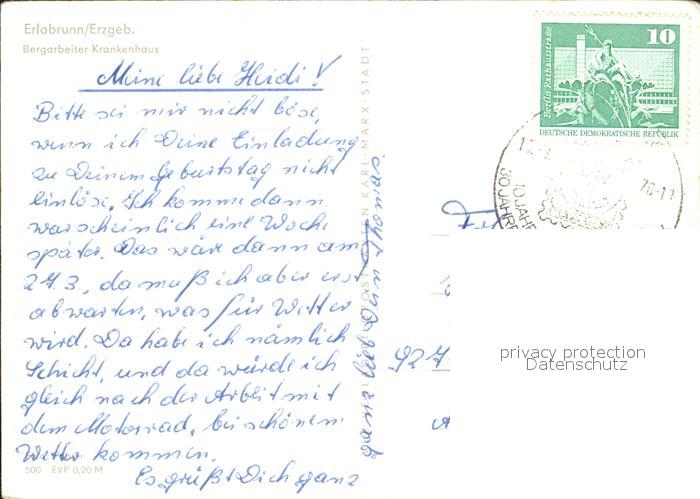 Erlabrunn/Erzgeb.
Bergarbeiter-Krankenhaus
Meine liebe Heidi!
Bitte sei mir nicht böse,
wenn ich Deine Einladung
zu Deinem Geburtstag nicht
einlöse. Ich komme dann
warscheinlich eine Woche
später. Das wäre dann am
27.3, da muß ich aber erst
abwarten, was für Wetter
wird. Da habe ich nämlich
Schicht, und da würde ich
gleich nach der Arbeit mit
dem Motorrad, bei schönen
Wetter kommen.
Es grüßt Dich ganz
ganz lieb Dein Thomas.
500 EVP 0,20 M
KARL-MARX-STADT
10
Berlin, Rathausstraße
DEUTSCHE DEMOKRATISCHE REPUBLIK
30 JAHRE
10 JAHRE
927
privacy protection
Datenschutz